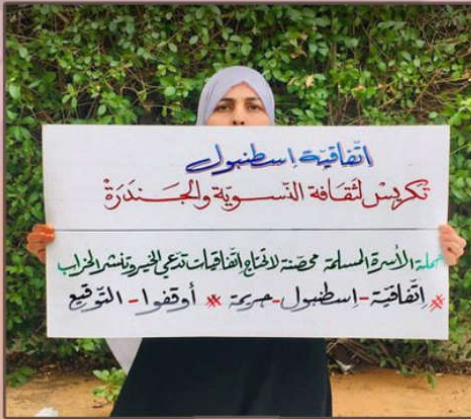 اتّفاقيّة إسطنبول
تكريس لثقافة النّسويّة والجَندَرَةْ
حملة الأسرة المسلمة محصّنة لا تحتاج اتّفاقيات تدّعي الخير وتنشر الخراب
# إتّفاقيّة-إسطنبول-جريمة # أوقفوا-التّوقيع